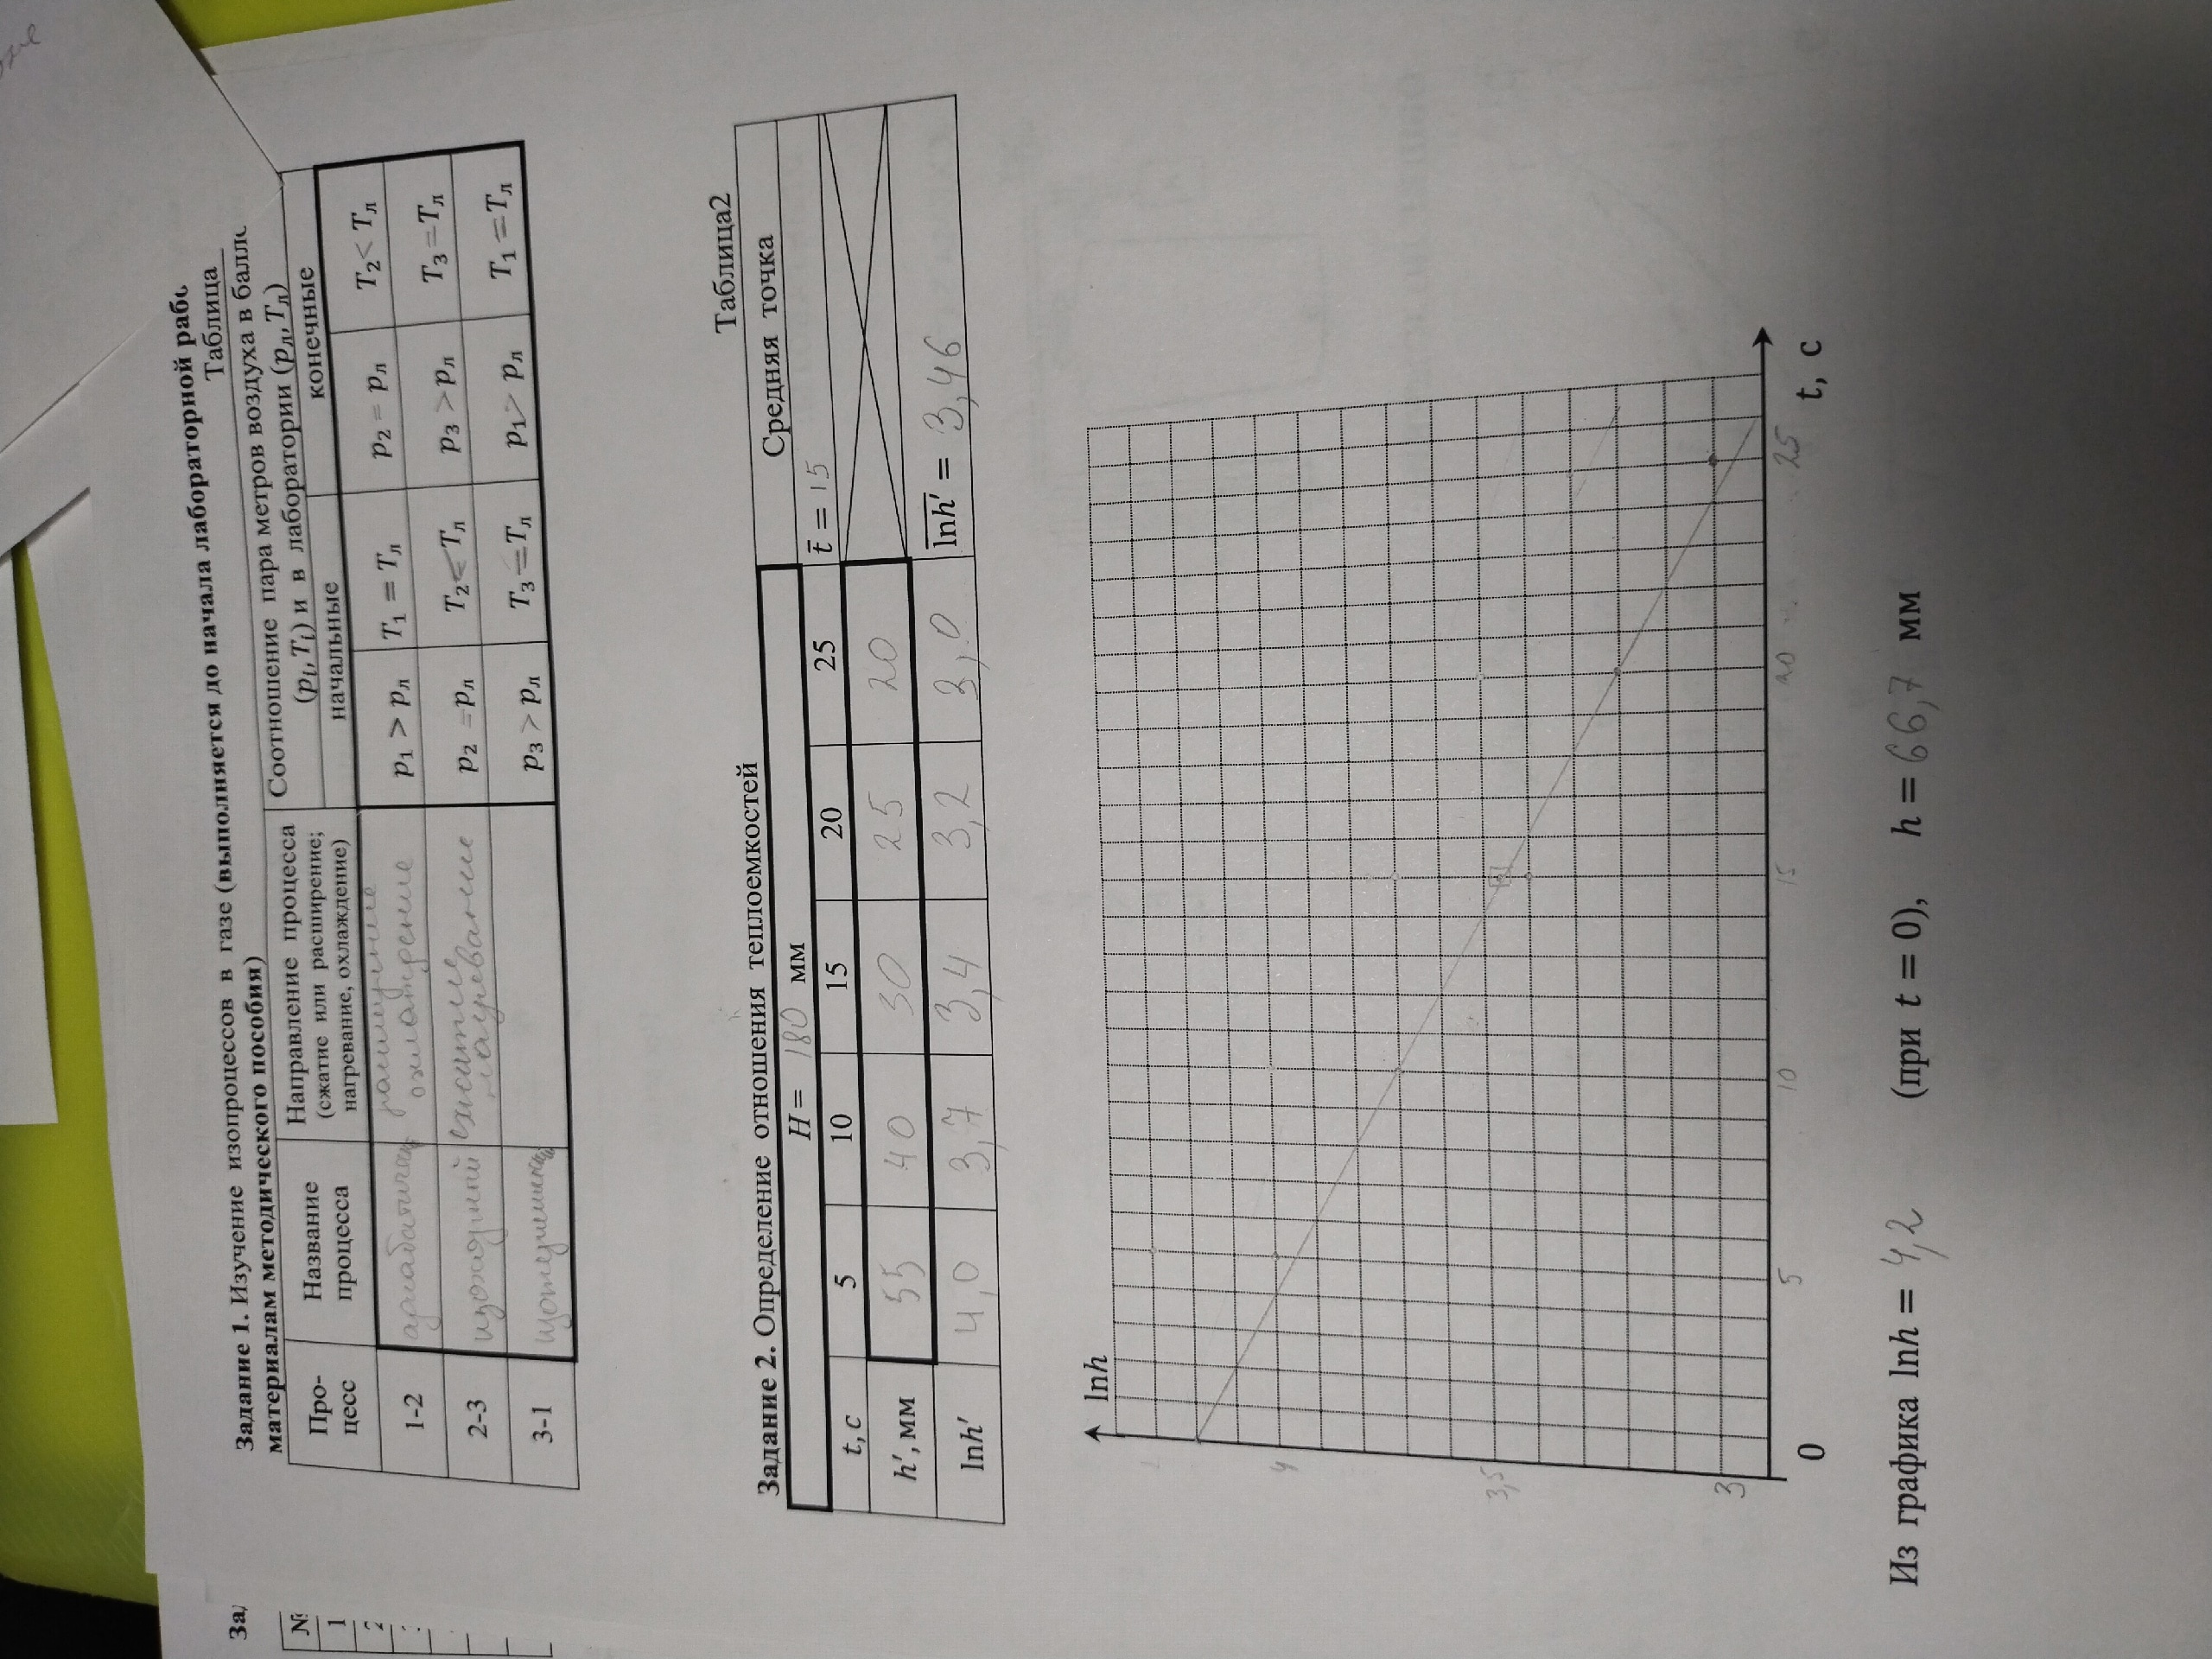 За
№
1
2
Задание 1. Изучение изопроцессов в газе (выполняется до начала лабораторной рабо
материалам методического пособия)
Таблица
Про-
цесс
Название
процесса
Направление процесса
(сжатие или расширение;
нагревание, охлаждение)
Соотношение пара метров воздуха в балло
(pᵢ, Tᵢ) и в лаборатории (pл, Tл)
начальные конечные
1-2 адиабатическ расширение охлаждение p₁ > pл T₁ = Tл p₂ = pл T₂ < Tл
2-3 изохорный сжатие нагревание p₂ = pл T₂ < Tл p₃ > pл T₃ = Tл
3-1 p₃ > pл T₃ = Tл p₁ > pл T₁ = Tл
Таблица2
Задание 2. Определение отношения теплоемкостей
H = 180 мм Средняя точка
t, с 5 10 15 20 25 t̅ = 15
h′, мм 55 40 30 25 20
lnh′ 4,0 3,7 3,4 3,2 3,0 lnh′ = 3,46
lnh
4
3,5
3
5 10 15 20 25
0 t, с
Из графика lnh = 4,2 (при t = 0), h = 66,7 мм